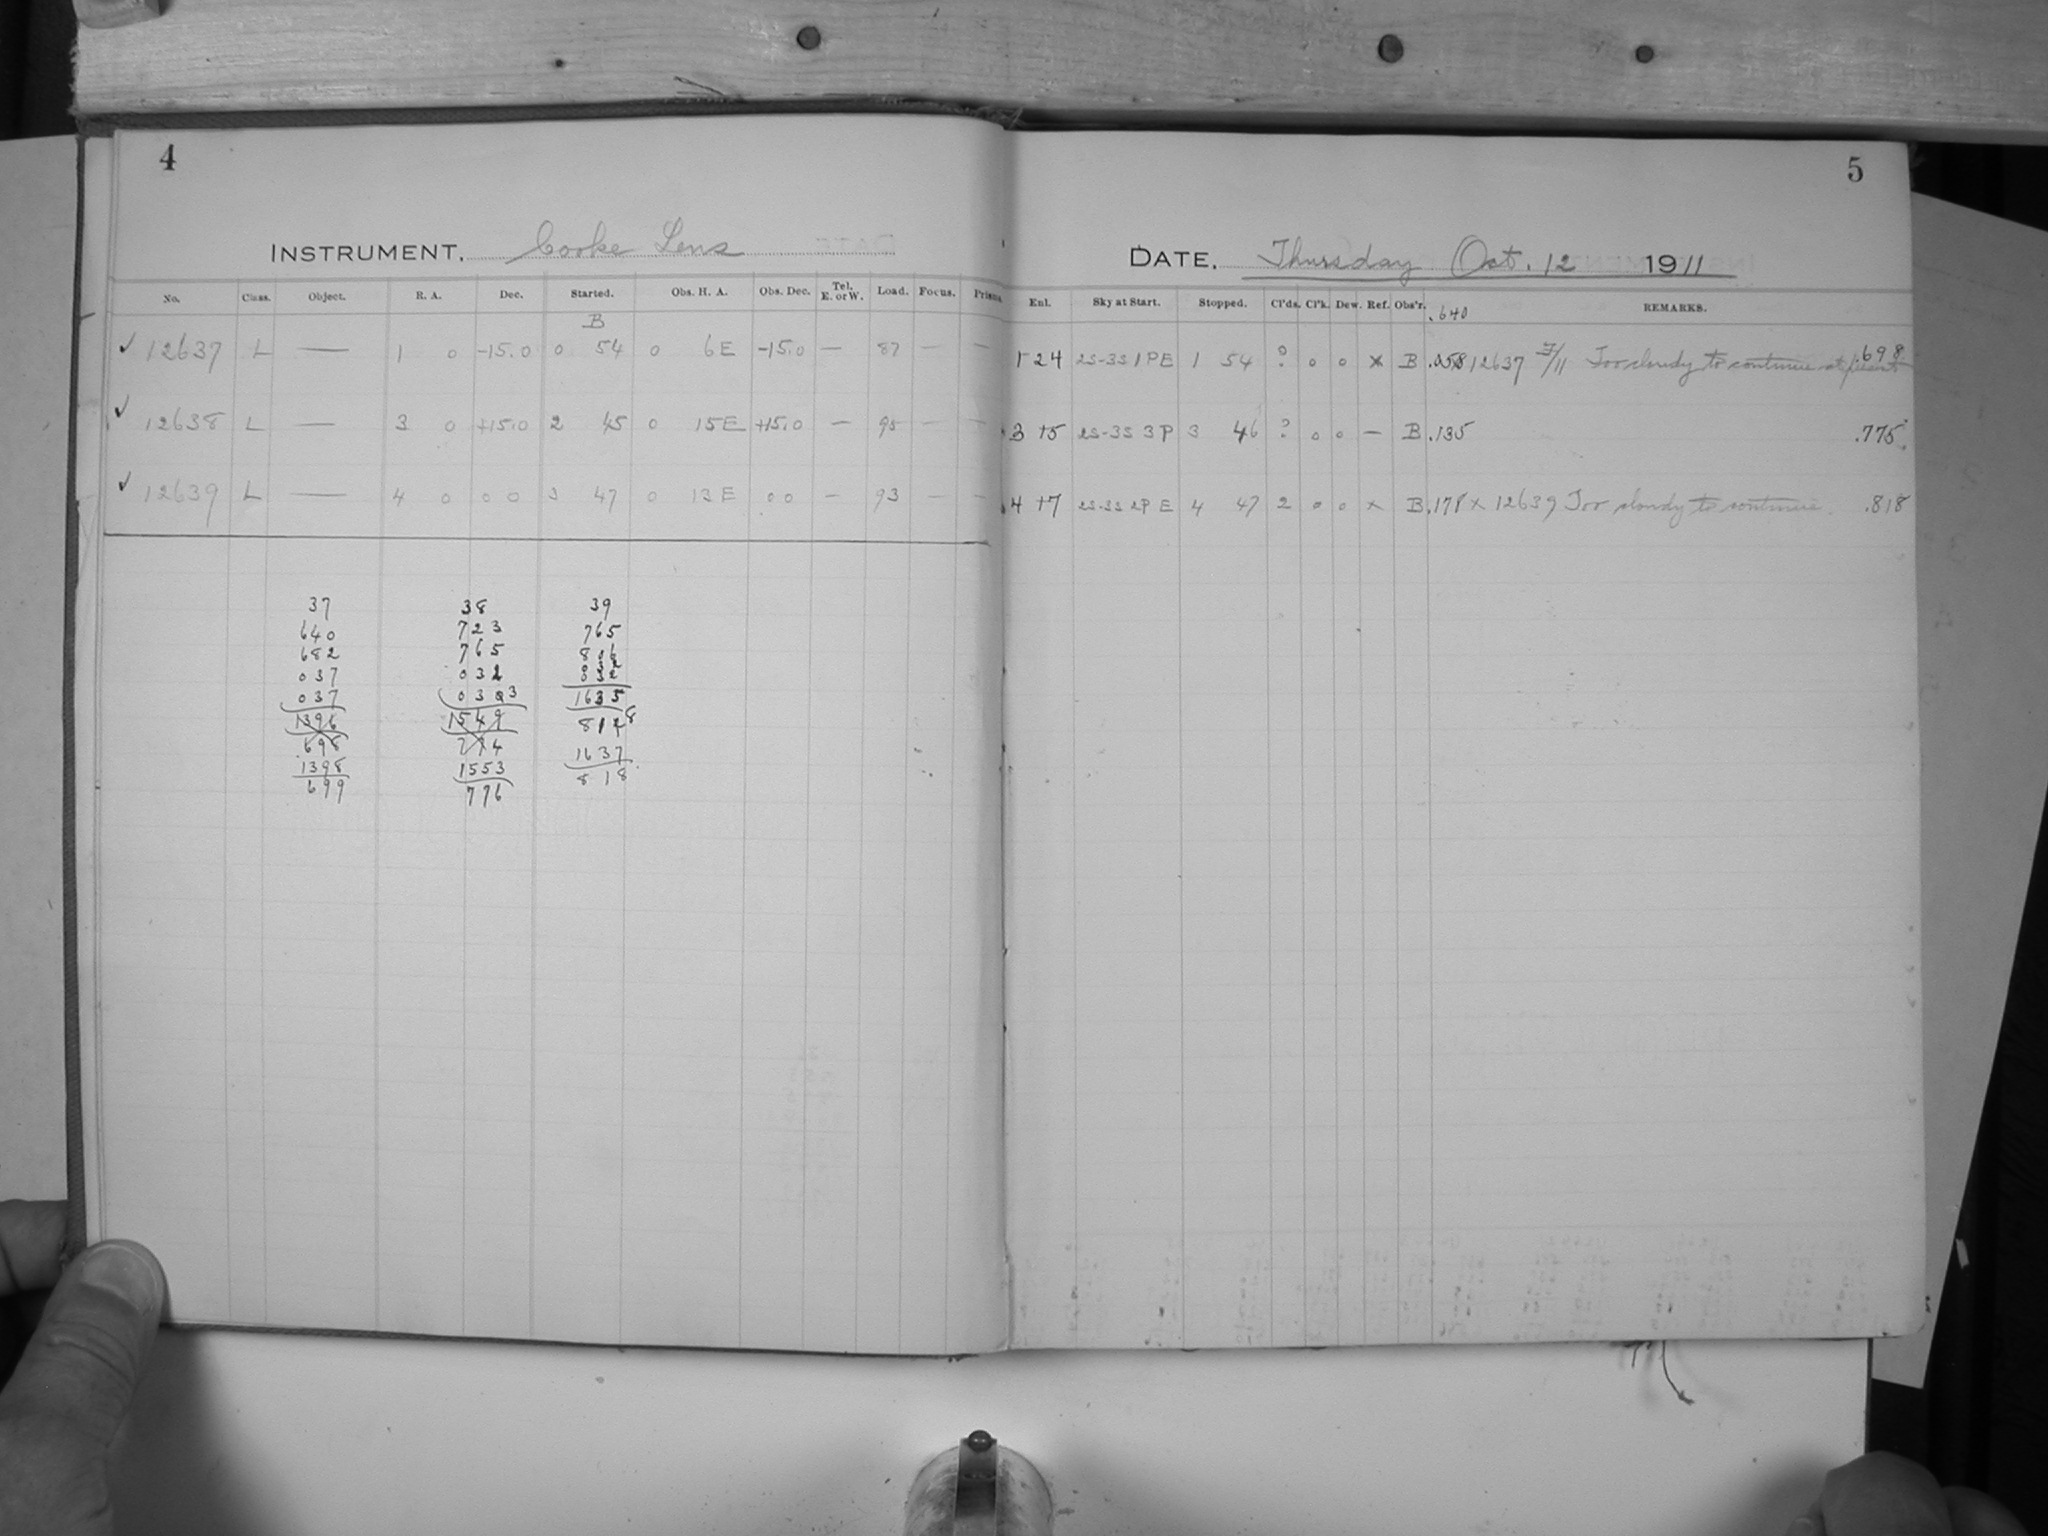 4
INSTRUMENT. Cooke Lens
No. Class. Object. R. A. Dec. Started. Obs. H. A. Obs. Dec. Tel. E. or W. Load. Focus. Prisms.
B
✓ 12637 L — 1 0 -15.0 0 54 0 6E -15.0 — 87 — —
✓ 12638 L — 3 0 +15.0 2 45 0 15E +15.0 — 95 — —
✓ 12639 L — 4 0 0 0 3 47 0 13E 0 0 — 93 — —
37 38 39
640 723 765
682 765
037 032 032
037
1396 1549 1635
698
1398 1553 1637
699 776 818
5
DATE. Thursday Oct. 12 1911
Enl. Sky at Start. Stopped. Cl'ds. Cl'k. Dew. Ref. Obs'r. REMARKS.
.640
1-24 2S-3S 1PE 1 54 ? 0 0 x B .058 12637 F/11 Too cloudy to continue at present .698
3 +5 2S-3S 3P 3 46 ? 0 0 — B .135 .775
4 +7 2S-3S 2PE 4 47 2 0 0 x B .178 x 12639 Too cloudy to continue. .818